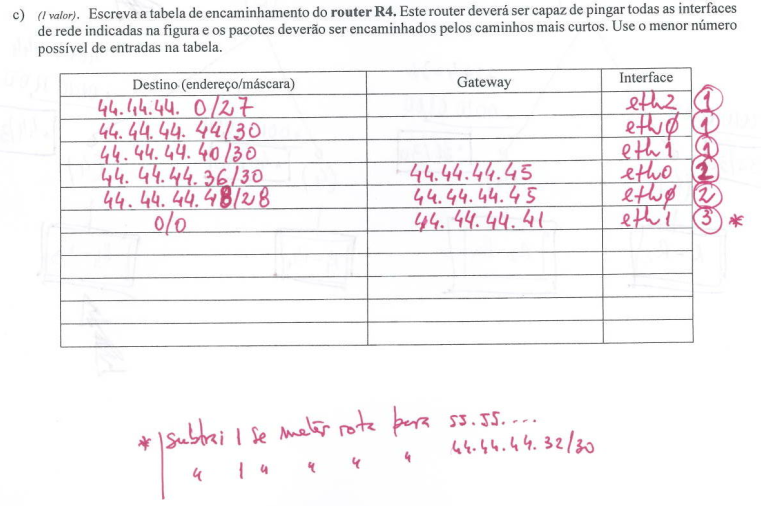 c) (1 valor). Escreva a tabela de encaminhamento do router R4. Este router deverá ser capaz de pingar todas as interfaces
de rede indicadas na figura e os pacotes deverão ser encaminhados pelos caminhos mais curtos. Use o menor número
possível de entradas na tabela.
Destino (endereço/máscara) Gateway Interface
44.44.44. 0/27 eth2 1
44.44.44. 44/30 ethø 1
44.44.44.40/30 eth1 1
44.44.44.36/30 44.44.44.45 eth0 2
44.44.44.48/28 44.44.44.45 ethø 2
0/0 44.44.44.41 eth1 3 *
* Subtrai 1 se meter rota para 55.55....
" 1 " " " " 44.44.44.32/30